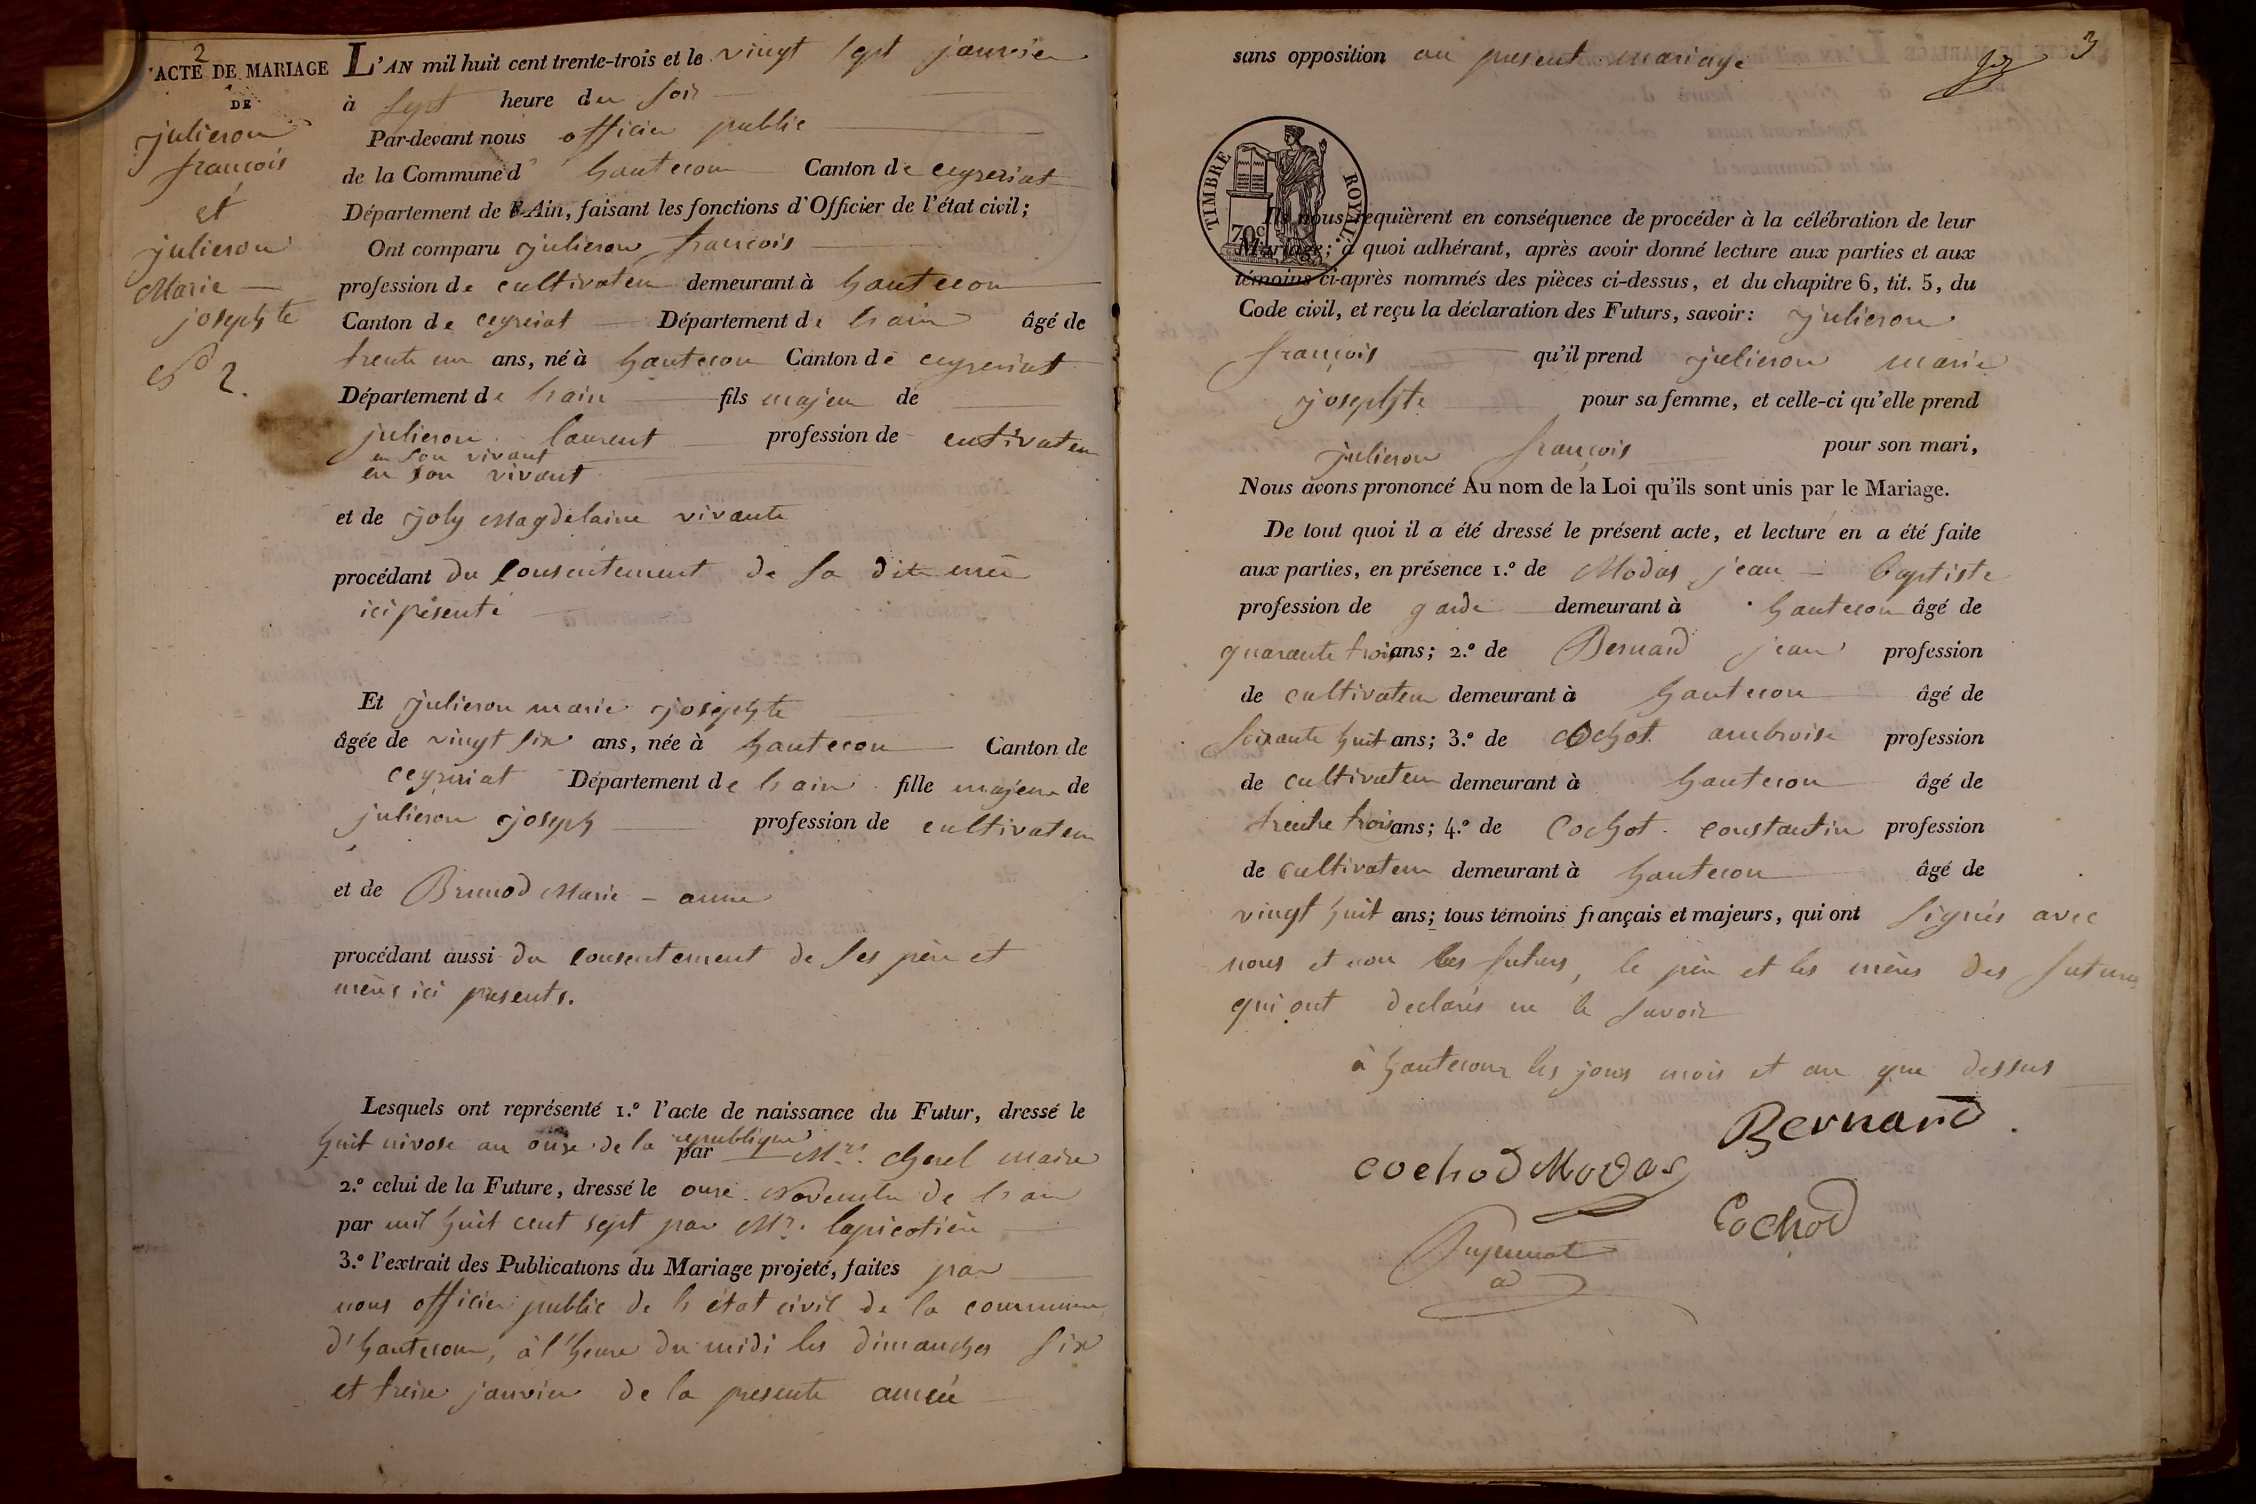 2
ACTE DE MARIAGE
DE
julieron
françois
et
julieron
Marie
josephte
N° 2.
L'AN mil huit cent trente-trois et le vingt sept janvier
à sept heure du soir
Par-devant nous officier public
de la Commune d' hautecour Canton de ceyzeriat
Département de l'Ain, faisant les fonctions d'Officier de l'état civil;
Ont comparu julieron françois
profession de cultivateur demeurant à hautecour
Canton de ceyzeriat Département de l'ain âgé de
trente un ans, né à hautecour Canton de ceyzeriat
Département de l'ain fils majeur de
julieron laurent profession de cultivateur
en son vivant
en son vivant
et de joly Magdelaine vivante
procédant du consentement de sa dite mère
ici présente
Et julieron marie josephte
âgée de vingt six ans, née à hautecour Canton de
ceyzeriat Département de l'ain fille majeure de
julieron joseph profession de cultivateur
et de Brunod Marie - anne
procédant aussi du consentement de ses père et
mère ici presents.
Lesquels ont représenté 1.° l'acte de naissance du Futur, dressé le
huit nivose an onze de la republique par Mr. cherel maire
2.° celui de la Future, dressé le onze Novembre de l'an
par mil huit cent sept par Mr. lapicotière
3.° l'extrait des Publications du Mariage projeté, faites par
nous officier public de l'état civil de la commune
d'hautecour, à l'heure du midi les dimanches six
et treize janvier de la presente année
3
sans opposition au present mariage
TIMBRE ROYAL
70c
Ils nous requièrent en conséquence de procéder à la célébration de leur
Mariage; à quoi adhérant, après avoir donné lecture aux parties et aux
témoins ci-après nommés des pièces ci-dessus, et du chapitre 6, tit. 5, du
Code civil, et reçu la déclaration des Futurs, savoir: julieron
françois qu'il prend julieron marie
josephte pour sa femme, et celle-ci qu'elle prend
julieron françois pour son mari,
Nous avons prononcé Au nom de la Loi qu'ils sont unis par le Mariage.
De tout quoi il a été dressé le présent acte, et lecture en a été faite
aux parties, en présence 1.° de Modas jean - baptiste
profession de garde demeurant à hautecour âgé de
quarante trois ans; 2.° de Bernard jean profession
de cultivateur demeurant à hautecour âgé de
soixante huit ans; 3.° de cochot ambroise profession
de cultivateur demeurant à hautecour âgé de
trente trois ans; 4.° de Cochot constantin profession
de cultivateur demeurant à hautecour âgé de
vingt huit ans; tous témoins français et majeurs, qui ont signés avec
nous et non les futurs, le père et les mères des futurs
qui ont declarés ne le savoir
à hautecour les jours mois et an que dessus
Bernard
cochod Modas
Cochod